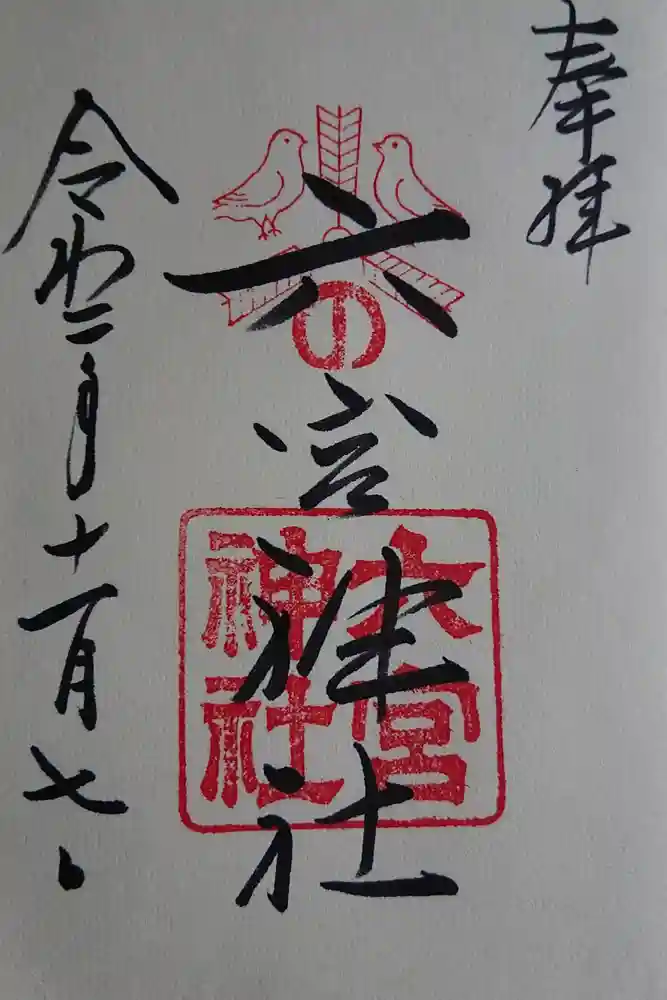 奉拝
六宮神社
令和二年十一月七日
の
六宮
神社